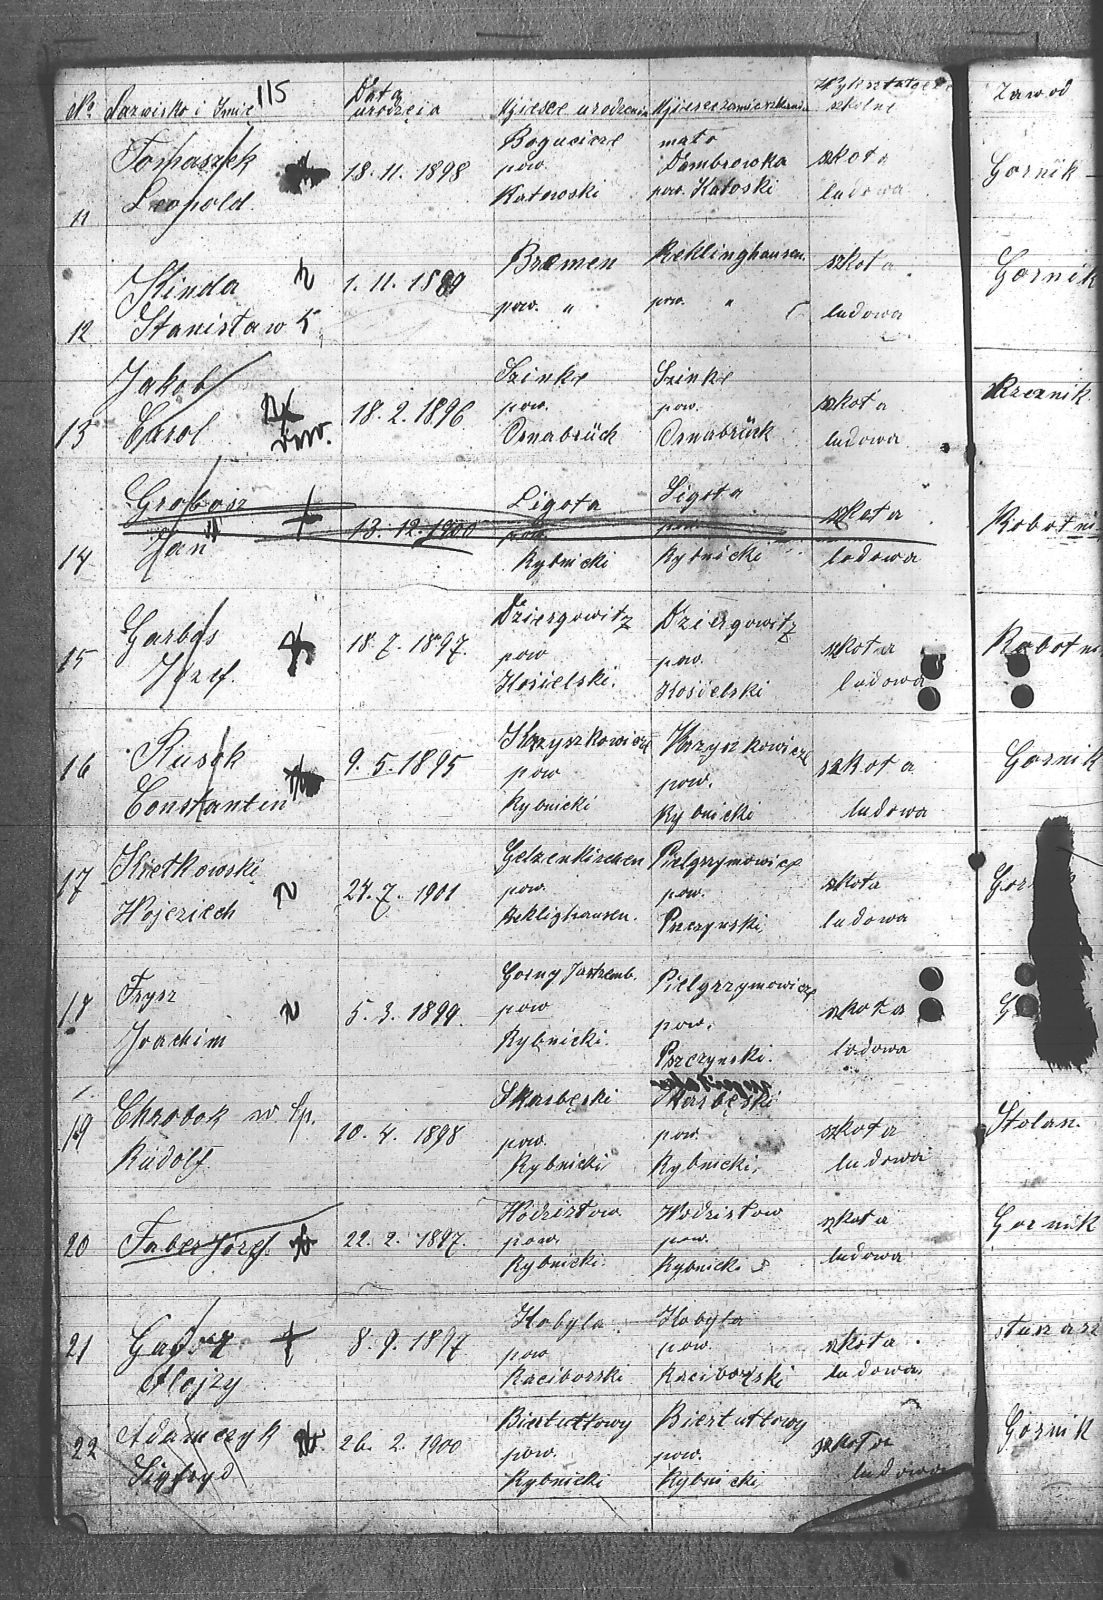 115
No Nazwisko i Imię Data urodzęia Miejsce urodzenia Miejsce zamieszkania Wykształce szkolne Zawod
11 Tomaszek Leopold 18. 11. 1898 Bogucice pow. Katowski mała Dambrowka pow. Katoski szkoła ludowa Gornik
12 Kinda Stanisław 1. 11. 1889 Bremen pow. " Reklinghausen. pow. " szkoła ludowa Gornik
13 Jakob Carol 18. 2. 1896 Szinke pow. Osnabrück Szinke pow. Osnabrück szkoła ludowa Rzeznik
14 Grobosz Jan 13. 12. 1900 Ligota pow. Rybnicki Ligota pow. Rybnicki szkoła ludowa Robotni
15 Garbas Józef. 18. 7. 1897. Dziergowitz pow Kosielski. Dziergowitz pow. Kosielski szkoła ludowa Robotni
16 Rusek Constantin 9. 5. 1895 Krzyszkowice pow Rybnicki Krzyszkowice pow. Rybnicki szkoła ludowa Gornik
17 Kietkowski Wojciech 24. 7. 1901 Gelzenkirchen pow. Reklighausen. Pielgrzymowice pow. Pszczynski szkoła ludowa
18 Frysz Joachim 5. 3. 1899. Gorny Jastrzemb. pow Rybnicki. Pielgrzymowice pow. Pszczynski. szkoła ludowa
19 Chrobok w Sp. Rudolf 10. 4. 1898 Skarbęski pow. Rybnicki Skarbęski pow. Rybnicki. szkoła ludowa Stolar.
20 Faber Józef. 22. 2. 1897. Wodzisłow pow. Rybnicki. Wodzisłow pow. Rybnicki szkoła ludowa Gornik
21 Alojzy 8. 9. 1897 Kobyla pow Raciborski Kobyla pow. Raciborski szkoła ludowa. slusarz
22 Adamczyk Sigfryd 26. 2. 1900 Biertułtowy pow. Rybnicki Biertułtowy pow. Rybnicki szkoła ludowa Gornik